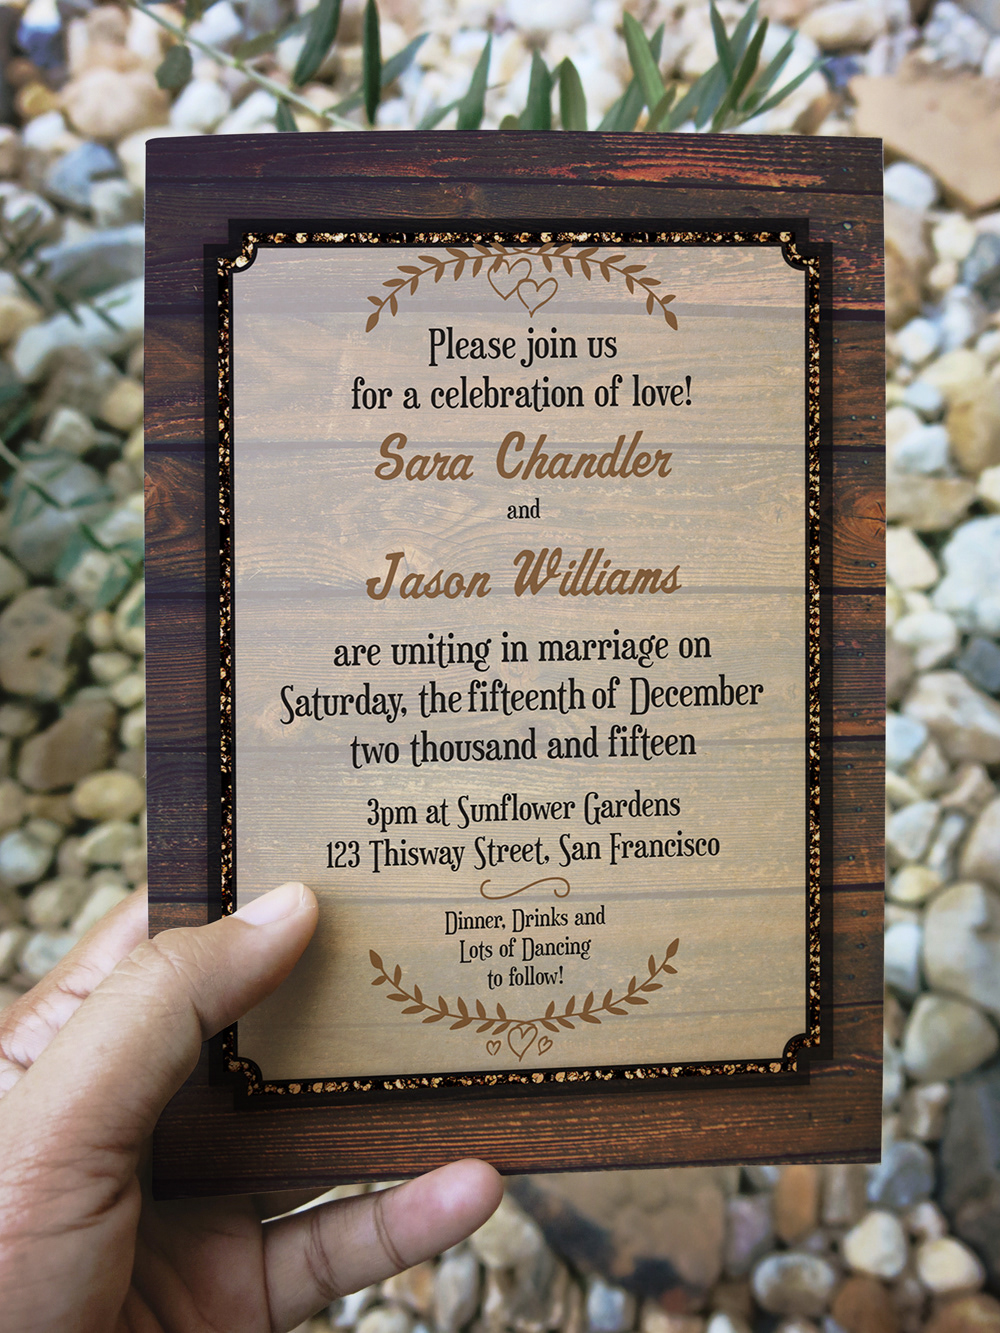 Please join us
for a celebration of love!
Sara Chandler
and
Jason Williams
are uniting in marriage on
Saturday, the fifteenth of December
two thousand and fifteen
3pm at Sunflower Gardens
123 Thisway Street, San Francisco
Dinner, Drinks and
Lots of Dancing
to follow!